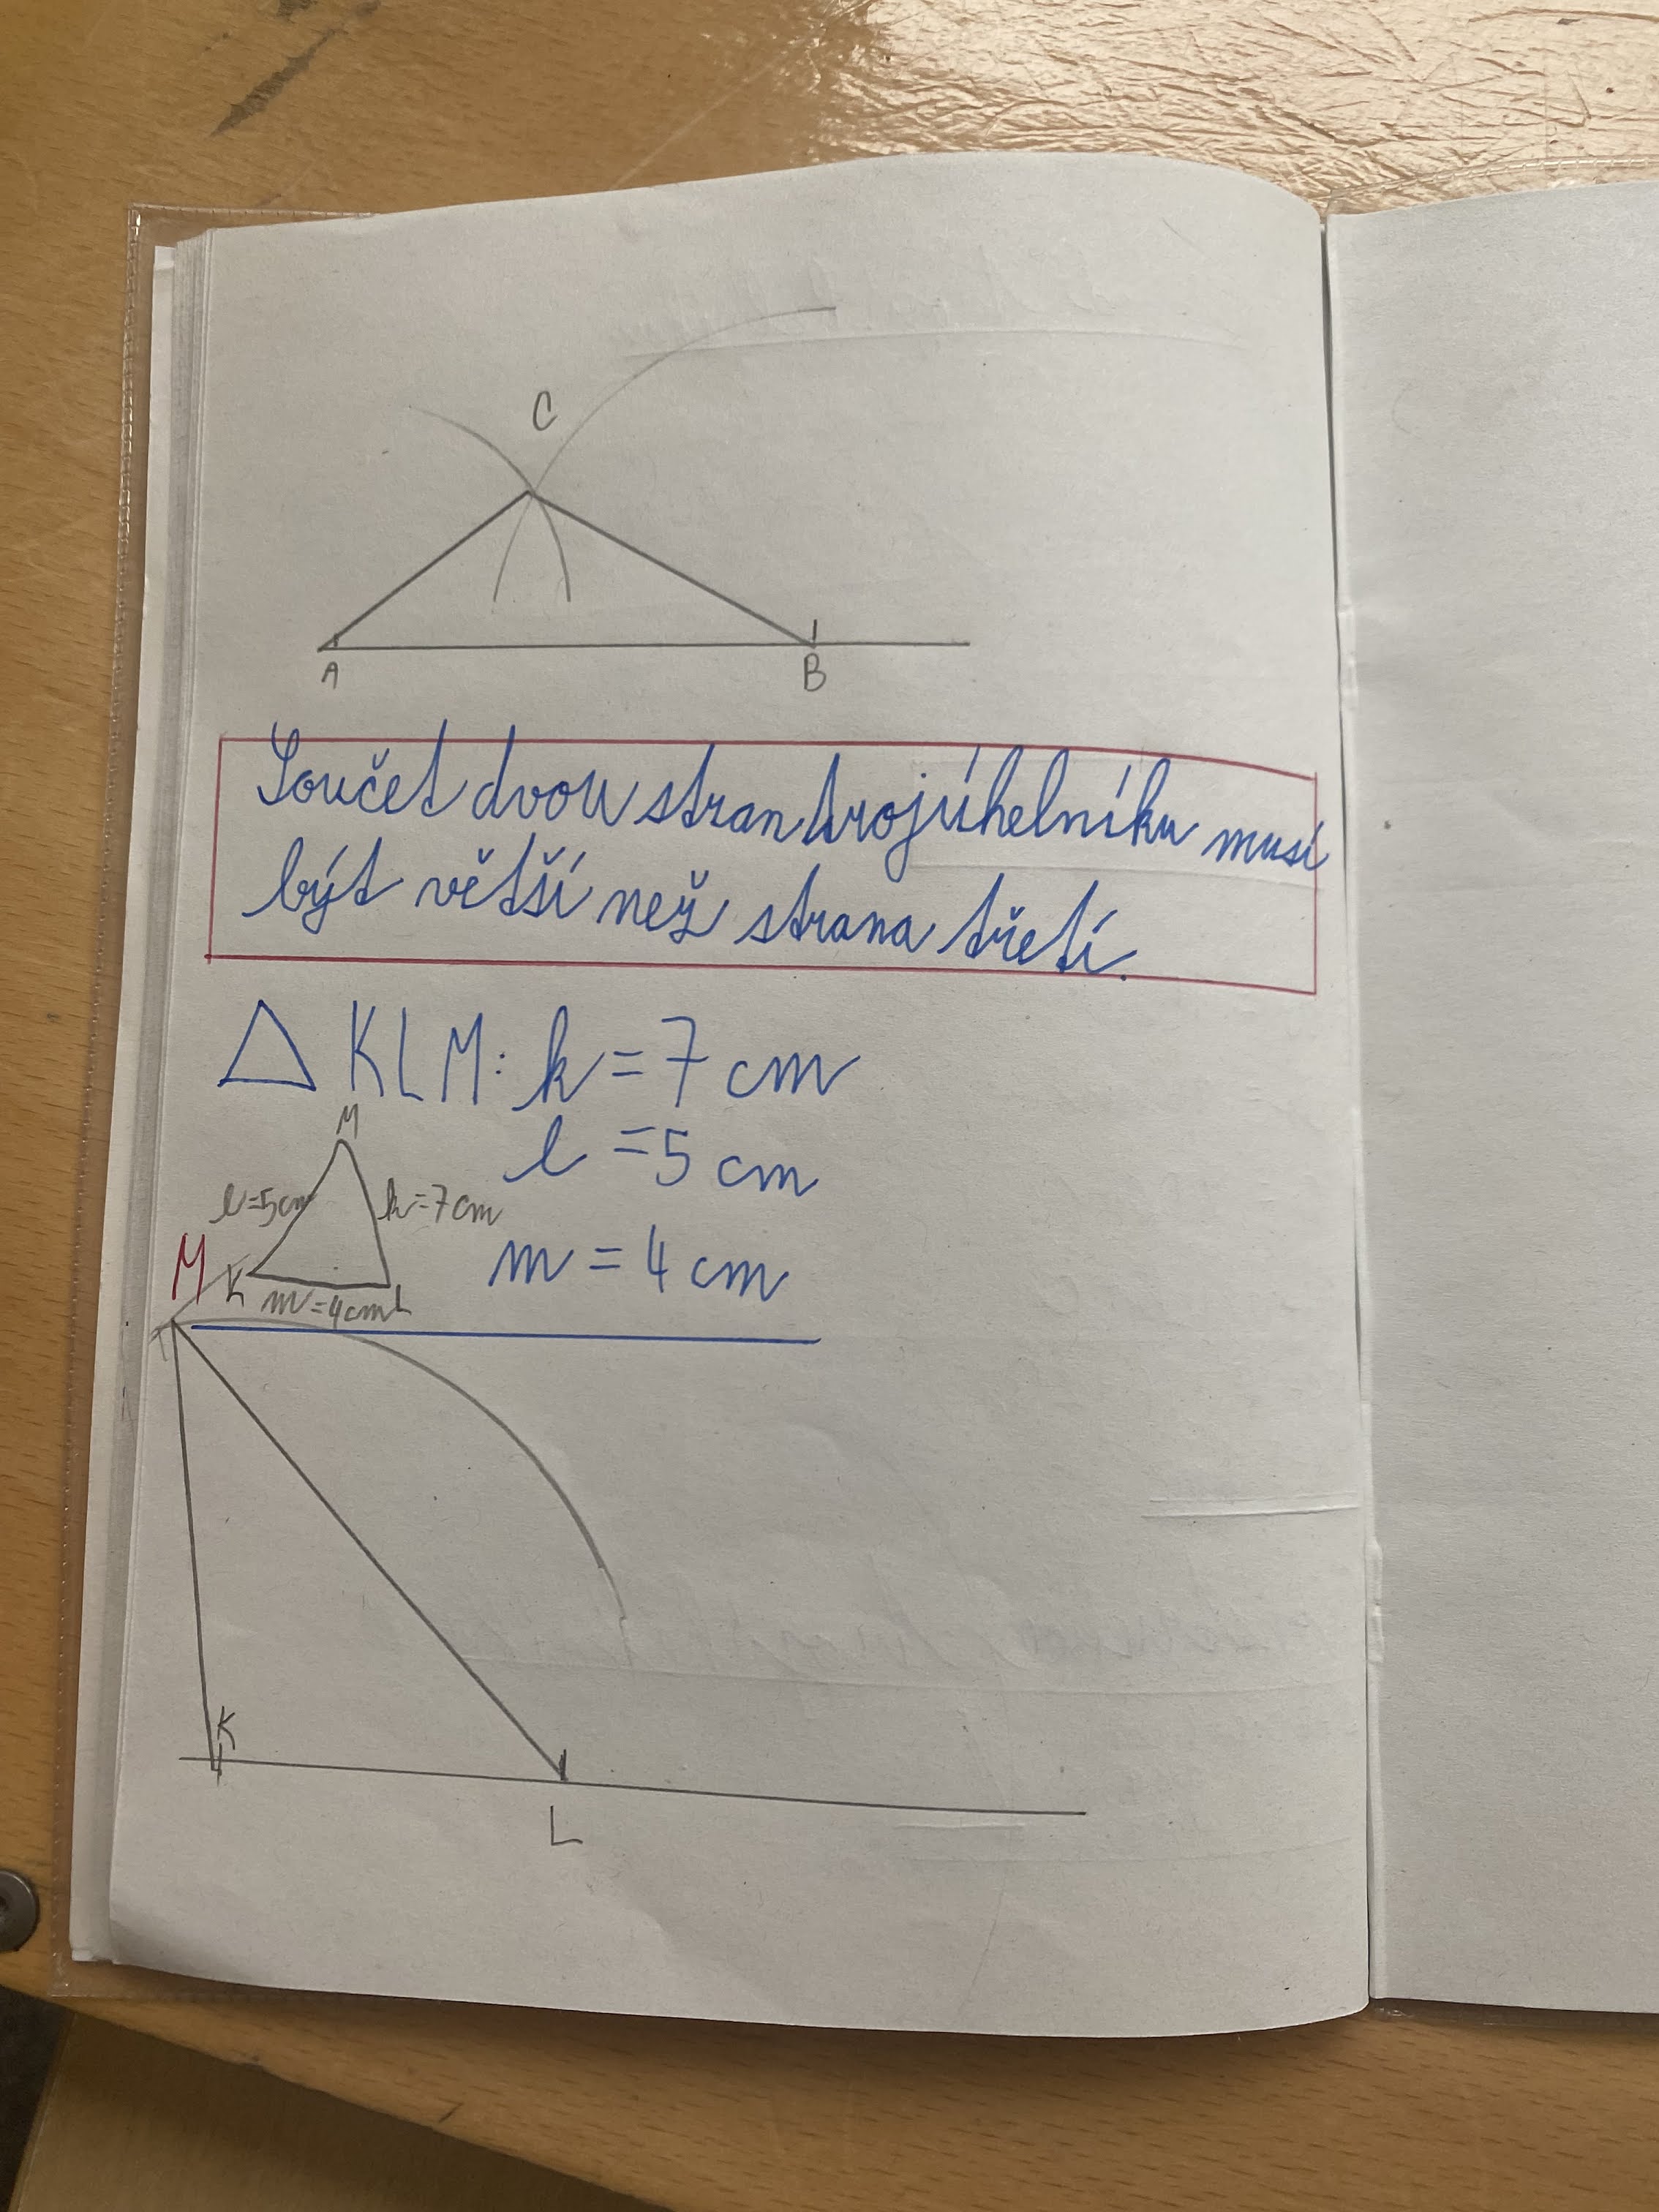 C
A B
Součet dvou stran trojúhelníku musí
být větší než strana třetí.
△ KLM: k = 7 cm
l = 5 cm
m = 4 cm
M
l=5cm k=7cm
K m=4cm L
M
K
L